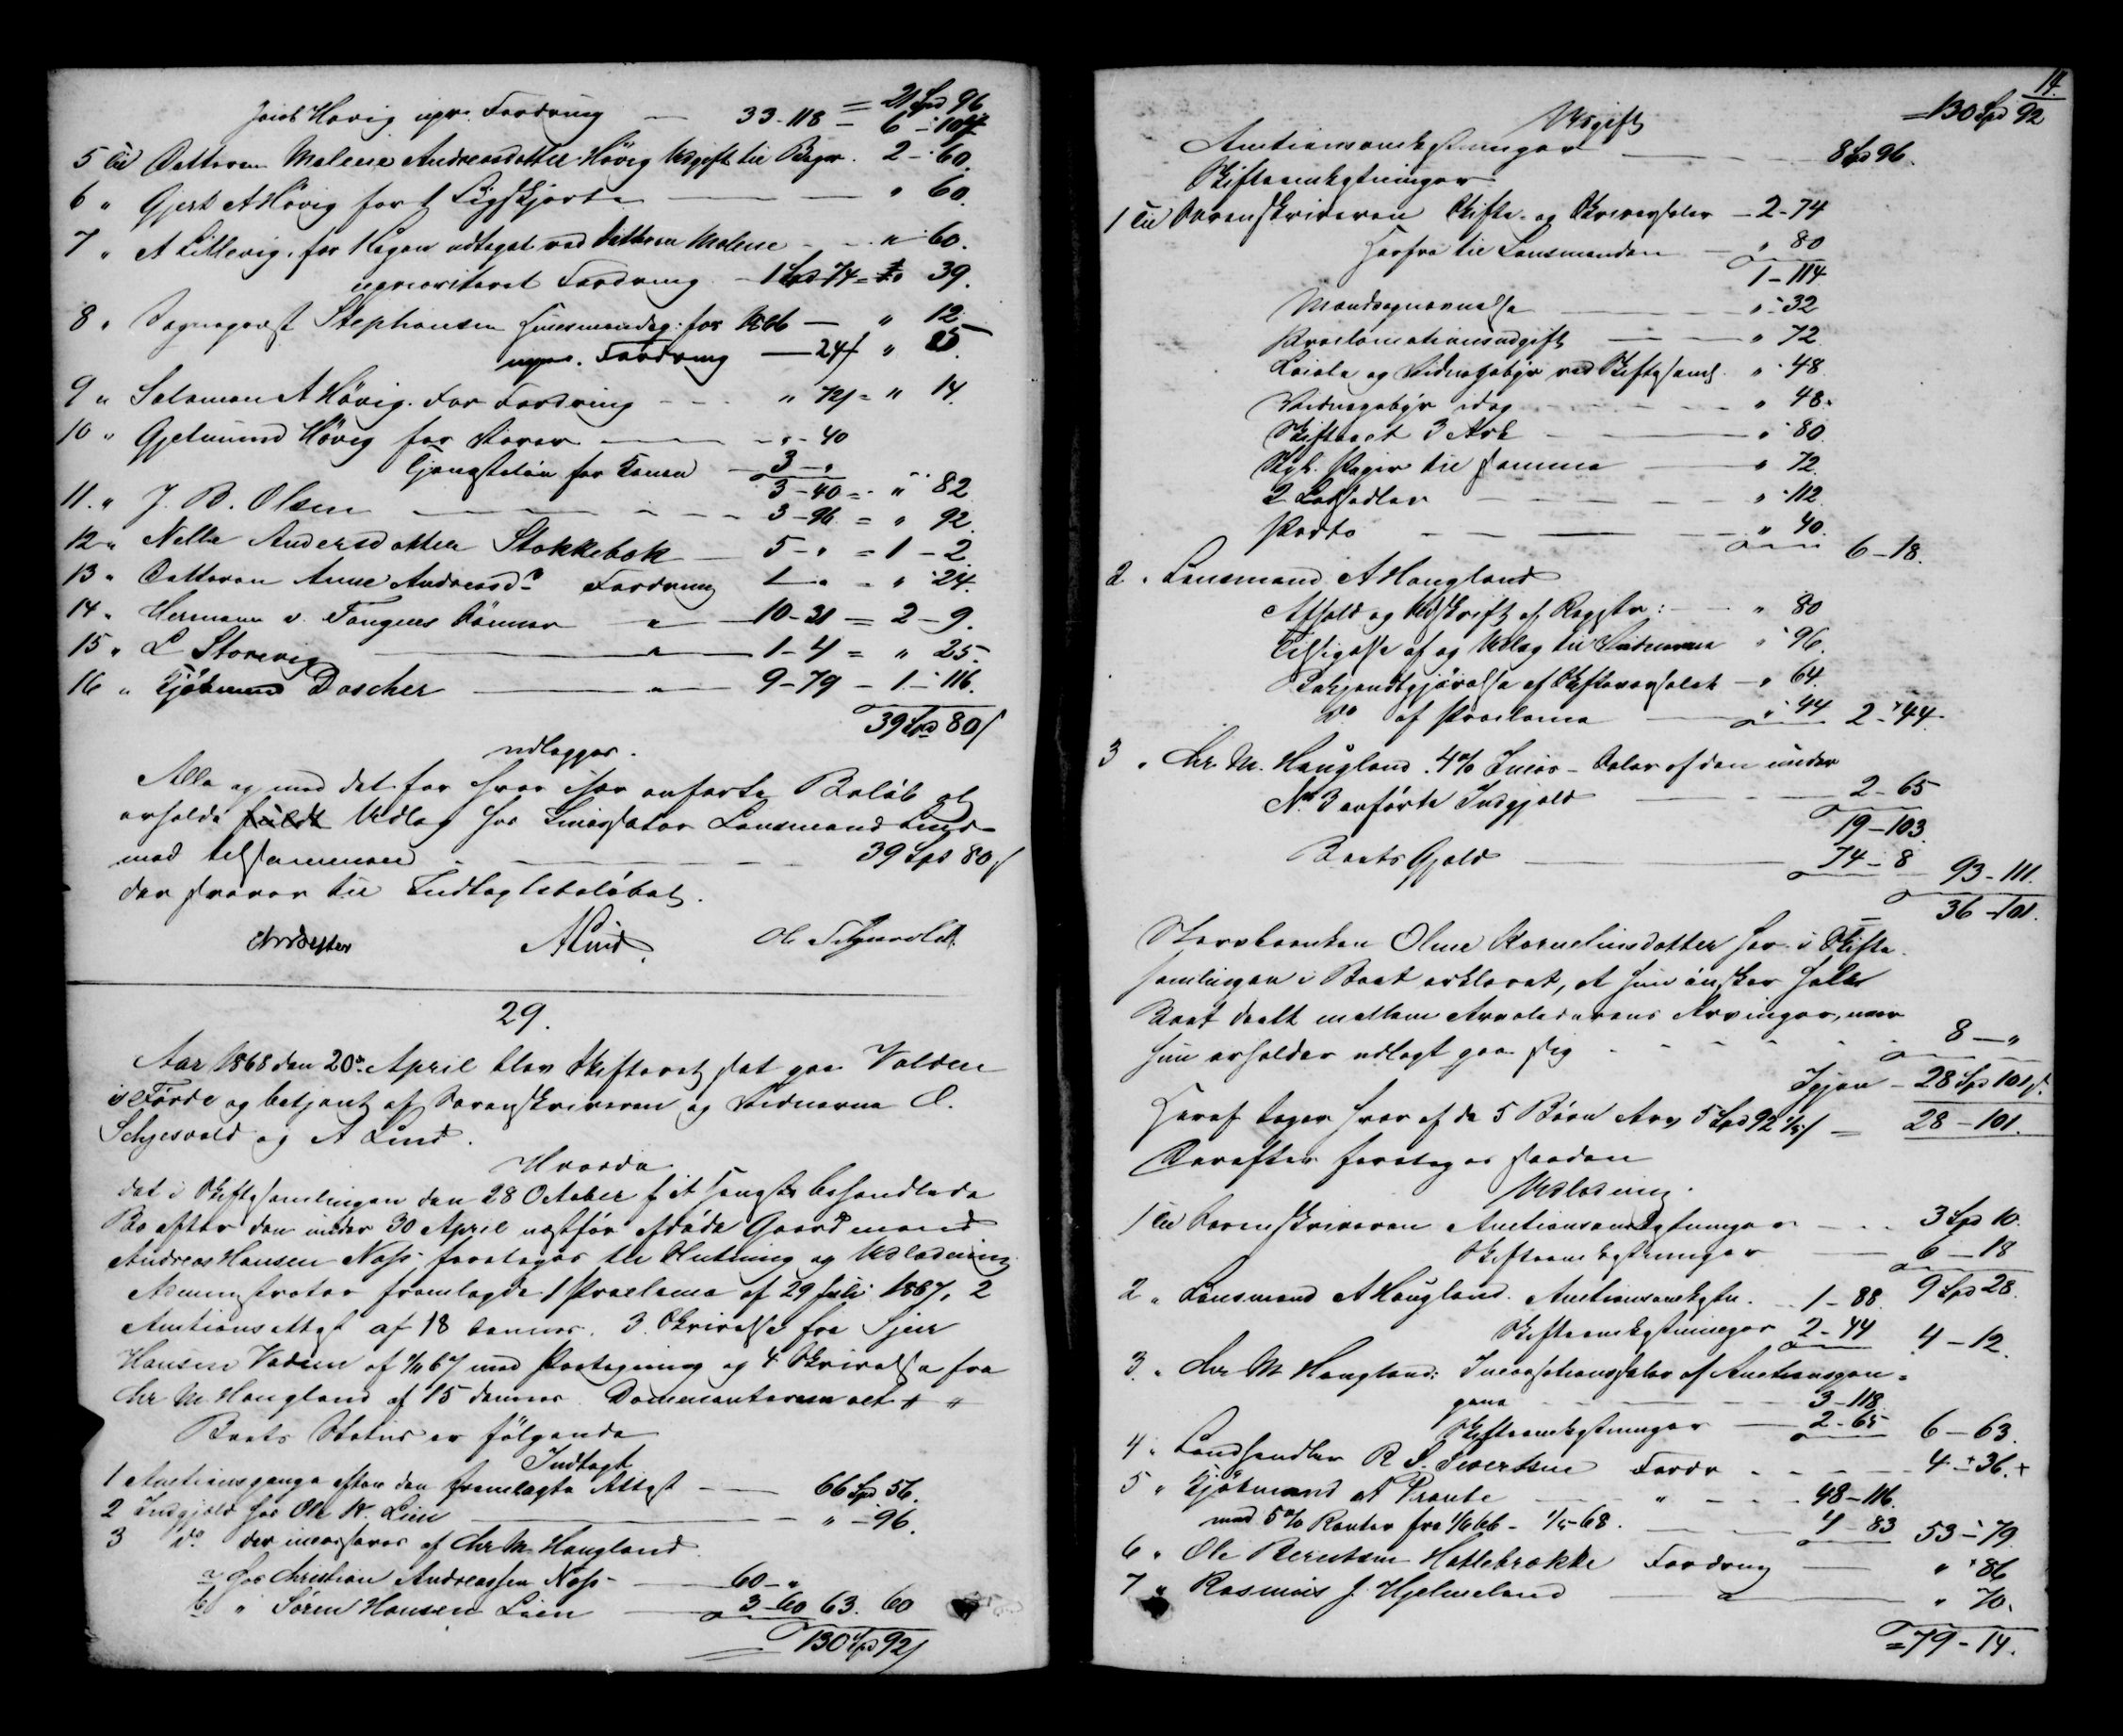 = 21 Spd 96
Jacob Hovig upr. Fordring — 33-118 = 6 - 107
5 Til Datteren Malene Andreasdatter Hövig Udgift til Begr. 2 - 60.
6 " Gjert A Hövig for 1 Ligskjorte — " 60.
7 " A Lillevig, for 1 Kagen udtaget ved datteren Malene - - " 60.
uprioriteret Fordring - 1 Spd 74 = " 39.
8 " Sognepræst Stephansen Huusmandsp: for 1866 — " 12
upr. Fordring — 24 / " 25.
9 " Salamon A Hövig. For Fordring - - - " 72/ = " 14.
10 " Gjelmund Hövig for Varer — " - 40
Tjenesteløn for Konen — 3 - "
3 - 40 = " 82
11. " J. B. Olsen — 3 - 96 = " 92.
12 " Nella Andersdatter Stokkebøk — 5 - " = 1 - 2.
13 " Datteren Anne Andreasdr. Fordring 1 - " - " 24.
14 " Hermann v. Tangens Sönner — " — 10-31 = 2 - 9.
15 " L Storevig — " — 1 - 4 = " 25.
16 " Kjöbmand Dascher — " — 9-79 - 1 - 116.
39 Spd 80 /
udlægges.
Alle og med det for hver især anførte Beløb og
erholde fuldt Udlæg hos Lensmand Lind
med tilsammen — 39 Spd 80 /
der svarer til Indtægtsbeløbet.
A Lind.
29.
Aar 1868 den 20de April blev Skifteret sat paa Valden
i Førde og betjent af Sorenskriveren og Vidnerne O.
Schjesvold og A Lind.
Hvorda
det i Skiftesamlingen den 28 October f. A. sengst behandlede
Bo efter den under 30 April næstfør afdøde Gaardmand
Andreas Hansen Næss foretages til Slutning og Udlodning
Administrator fremlagde 1 Proclama af 29 Juli 1867, 2
Auctionsattest af 18 dennes. 3. Skrivelse fra Sjur
Hansen Vadem af 1/11 67 med Paategning og 4 Skrivelse fra
Chr M Haugland af 15 dennes. Documenterne
Boets Status er følgende
Indtægt
1 Auctionspenge efter den fremlagte Attest — 66 Spd 56.
2 Indgjæld hos Ole K. Lien — " - 96.
3 do der incasseres af Chr M. Haugland.
a hos Christian Andreassen Næss - 60 - "
b " Sören Hansen Lien — 3-60 63. 60
130 Spd 92 /
14.
= 130 Spd 92
Udgift
Auctionsomkostninger — 8 Spd 96.
Skifteomkostninger
1 Til Sorenskriveren Skifte- og Skriversalær — 2-74
Herfra til Lensmanden — " 80
1 - 114
Mandsopnævnelse — " - 32
Proclamationsudgift — " 72
Locale og Vidnegebyr ved Skiftesaml. " - 48
Vidnegebyr idag — " 48.
Skifteact 3 Ark — " 80
Stpl. Papir til samme — " 72.
2 Lodsedler — " - 112
Porto — " 40. 6 - 18.
2 " Lensmand A Haugland
Afhold og Udskrift af Registr: — " 80
Tilsigelse af og Udlæg til Vidnerne " 96.
Bekjendtgjørelse af Skiftevæsenet — " 64.
Do af Proclama — " 44 2 - 44.
3 " Chr M. Haugland. 4 % Incas-Salær af den under
No 3 anførte Indgjæld — 2 - 65
19 - 103.
Boets Gjæld — 74 - 8 93 - 111.
36 - 101.
Stervboenken Oline Korneliusdatter har i Skifte-
samlingen i Boet erklæret, at hun ønsker hele
Boet deelt mellem Arveladerens Arvinger, naar
hun erholder udlagt paa sig - - - 8 - "
Igjen - 28 Spd 101 /.
Heraf tager hver af de 5 Børn Arv 5 Spd 92 1/5 / = 28 - 101.
Derefter foretoges saadan
Udlodning.
1 Til Sorenskriveren Auctionsomkostninger — 3 Spd 10.
Skifteomkostninger — 6 - 18
9 Spd 28.
2 " Lensmand A Haugland. Auctionsomkstn. - 1 - 88.
Skifteomkostninger 2 - 44 4 - 12.
3. " Chr M Haugland: Incassationssalær af Auctionspen-
gene — 3 - 118.
Skifteomkostninger — 2 - 65 6 - 63.
4 " Landhandler R S. Sivertsen Fordr - - - 4 - 36.
5 " Kjöbmand A Prante — " — 48 - 116.
med 5 % Renter fra 1/6 66 - 1/5 68. — 4 - 83 53 - 79.
6 " Ole Berntsen Hattebrække Fordring — " 86
7 " Rasmus J. Hjelmeland — " — " 70.
= 79 - 14.